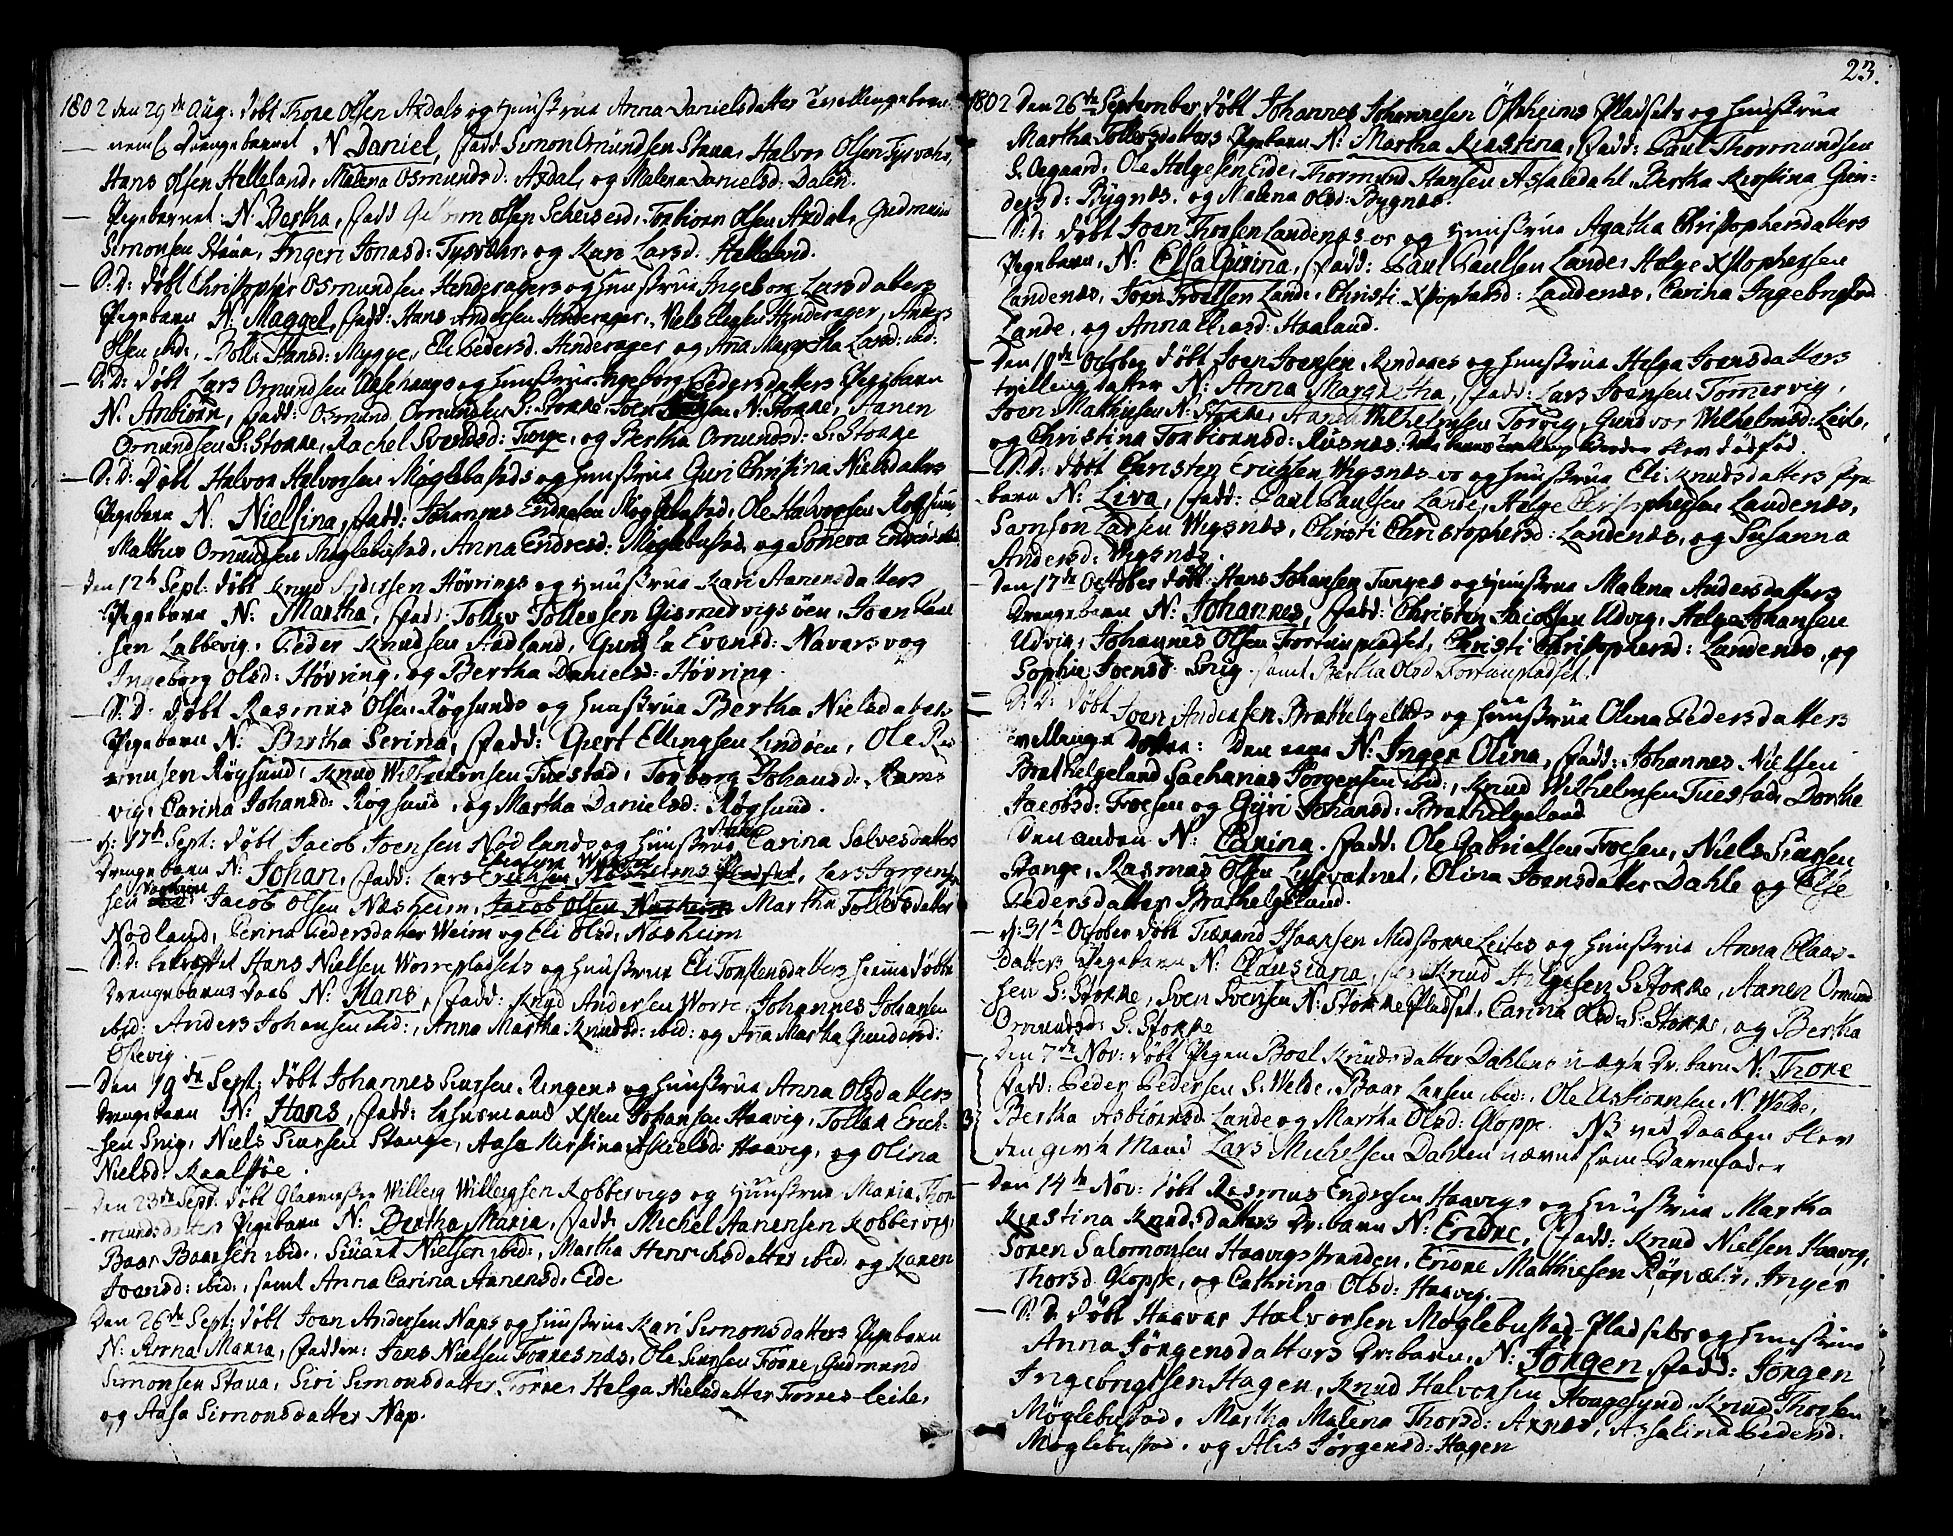 1802 den 29de Aug: døbt Thore Olsen Axdals og Hunstrue Anna Danielsdatter Tvillingebørn
neml: Drengebarnet N Daniel, fadd: Simon Omundsen Stava, Halvor Olsen Tysvahr,
Hans Olsen Helleland, Malena Osmundsd: Axdal, og Malena Danielsd: Dalen.
Pigebarnet: N. Bertha, fadd Olsen Torbiorn Olsen Axdal, Gudmund
Simonsen Stava, Ingeri Jonasd: Tysvehr, og Kari Larsd: Helleland.
S: D: døbt Christopher Osmundsen Hinderagers og Hunstrue Ingeborg Larsdatters
Pigebarn N. Maggel, fadd: Hans Andersen Hinderager, Niels Elefsen Hinderager, Anders
Olsen ibid:, Bolle Hansd: Mygge, Eli Pedersd. Hinderager og Aña Margretha Larsd: ibd:
S: D: døbt Lars Omundsen og Hunstrue Ingeborg Pedersdatters Pigebarn
N: Anbiorn, fadd: Osmund Omundsen S: Stokke, Joen N: Stokke, Aanen
Omundsen S: Stokke, Rachel Svendsd: Tunge, og Bertha Omundsd: S: Stokke
S: D: Døbt Halvor Halvorsen Møglebustads og Hunstrue Guri Christina Nielsdatters
Pigebarn N. Nielsina, fadd: Johannes Endresen Møglebustad, Ole Halvorsen
Mathis Omundsen Møglebustad, Anna Endresd: Møglebustad, og Soneva Endresd: ibd:
Den 12te Sept: døbt Knud Høvrings og Hunstrue Kari Aanensdatters
Pigebarn N: Martha, fad: Tollev Tollevsen Gismervigsøen, Joen Paul
sen Labbevig, Peder Knudsen Aadland, Gunla Evensd: Navarsvog
Ingeborg Olsd: Høvring, og Bertha Danielsd: Høvring.
S: D: døbt Rasmus Olsen Røgsunds og Hunstrue Bertha Nielsdatters
Pigebarn N: Bertha Serina, fadd: Gjert Ellingsen Lindøen, Ole Ra
smusen Røgsund, Knud Wilhelmsen Tuestad, Torborg Johansd: Rams
vig, Carina Johansd: Røgsund, og Martha Danielsd: Røgsund.
d: 17de Sept: døbt Jacob Joensen Nodlands og Hunstrue Carina Salvesdatters
Drengebarn N: Johan, fadd: Lars Lars Jørgen
sen Jacob Olsen Nøsheim, Jacob Olsen Nøsheim Martha Tollevsdatter
Nodland, Perina Pedersdatter Weim og Eli Olsd: Nøsheim
S: D: bekræftet Hans Nielsen Worrepladsets og Hunstrue Eli Torstensdatters hiemedøbte
Drengebarns Daab N: Hans, fadd: Knud Andersen Worre, Johannes Johansen
ibid: Anders Johansen ibid:, Anna Martha Knudsd: ibid: og Aña Martha Gundersd:
Østevig.
Den 19de Sept: døbt Johannes Siursen Ringens og Hunstrue Anna Olsdatters
Drengebarn N: Hans, fadd: Johansen Haavig, Tollak Erich
sen Snig, Niels Siursen Stange, Aasa Kirstina Askielsd: Haavig, og Olina
Nielsd: Kaalstøe.
Den 23de Sept: døbt Willerg Willergsen Kobbervigs og Hunstrue Maria Thor
mundsdatters Pigebarn N: Bertha Maria, fadd: Michel Aanensen Kobbervig,
Baar Baarsen ibid:, Siuart Nielsen ibid:, Martha Henrichsdatter ibid: og Karen
Joensd: ibid:, samt Anna Carina Aanensd: Eide
Den 26de Sept: døbt Joen Andersen Naps og Hunstrue Kari Simonsdatters Pigebarn
N: Anna Maria, Fadder: Jens Nielsen Fornesnæs, Ole Siursen Forne, Gudmund
Simonsen Stava, Siri Simonsdatter Forne, Helga Nielsdatter Fornes-Leite,
og Aasa Simonsdatter Nap.
23.
1802 Den 26de September døbt Johannes Johannesen Østheims Pladsets og Hunstrue
Martha Tollevsdatters Pigebarn N: Martha Kirstina, fadd: Paul Thormundsen
S: Aagaard, Ole Helgesen Eide, Thormund Hansen Assaledahl, Bertha Kirstina Gun-
dersd: Bygnes, og Malena Olsd: Bygnes.
S: D: døbt Joen Troesen Landenæs og Hunstrue Agatha Christophersdatters
Pigebarn, N: Elsa Gurina, fadd: Paul Paulsen Lande, Helge Xstophersen
Landenæs, Joen Troelsen Lande, Christi Xstophersd: Landenæs, Carina Ingebrigtsd:
Lande, og Anna Eliasd: Haaland.
Den 10de October døbt Joen Joensen og Hunstrue Helga Joensdatters
tvilling datter N: Anna Margretha, fadd: Lars Joensen Tømervig,
Joen Mathiesen N: Stokke, Wilhelmsen Torvig, Gundvor Wilhelmsd: Leite,
og Christina Torbiornsd: Røsnæs. blev dødfød.
S: D: døbt Christen Erichsen Wigsnæs og Hunstrue Eli Knudsdatters Pige-
barn N: Liva, fadd: Paul Paulsen Lande, Helge Christophersen Landenæs,
Samson Larsen Wigsnæs, Christi Christophersd: Landenæs, og Susanna
Andersd: Wigsnæs.
Den 17de October døbt Hans Johansen Tunges og Hunstrue Malena Andersdatters
Drengebarn N: Johannes, fadd: Christen Jacobsen Udvig, Helge Johansen
Udvig, Johannes Olsen Fortunpladset, Christi Christophersd: Landenæs, og
Sophie Joensd: Snig. samt Bertha Olsd: Fortunpladset.
S: D: døbt Joen Andersen Brathelgelands og Hunstrue Olena Pedersdatters
Tvillinge Døttre: Den eene N: Inger Olina, fadd: Johannes Nielsen
Brathelgeland Sacharias Jørgensen ibid:, Knud Wilhelmsen Tuestad, Dorthe
Jacobsd: Troesen og Gyri Johansd: Brathelgeland
Den anden N: Carina. fadd: Ole Gabrielsen Troesen, Niels Siursen
Stange, Rasmus Olsen Lysevatnet, Olina Joensdatter Dahle og Else
Pedersdatter Brathelgeland.
d: 31te October døbt Tiærand Isaacsen Midstokkeleites og Hunstrue Anna Claas-
datters Pigebarn N: Clausiana, fadd: Knud Helgesen S: Stokke, Aanen Omund
sen S: Stokke, Sven Svensen N: Stokke Pladset, Carina Olsd: S: Stokke, og Bertha
Omundsd: S: Stokke
Den 7de Nov: døbt Pigen Boel Knudsdatter Dahlens uægte Dr: barn N: Thore
fadd: Peder Pedersen S: Welde, Baar Larsen ibid:, Ole Asbiornsen N: Welde,
Bertha Asbiørnsd: Lande og Martha Olsd: Gloppe. NB ved Daaben blev
den givte Mand Lars Michelsen Dahlen nævnt som Barnfader
Den 14de Nov: døbt Rasmus Endresen Haavigs og Hunstrue Martha
Kirstina Knudsdatters Dr: barn N: Endre, fadd: Knud Nielsen Haavig,
Søren Salomonsen Haavigstranden, Endre Mathiesen Røgvæhr, Inger
Thorsd: Gloppe, og Cathrina Olsd: Haavig.
S: D: døbt Haavar Halvorsen Møglebustad Pladsets og Hunstrue
Anna Jørgensdatters Dr: barn, N: Jørgen, fadd: Jørgen
Ingebrigtsen Hagen, Knud Halvorsen Hougesund, Knud Thorsen
Møglebustad, Martha Malena Thorsd: Axnes, Assalina Pedersd:
Møglebustad, og Alis Jørgensd: Hagen